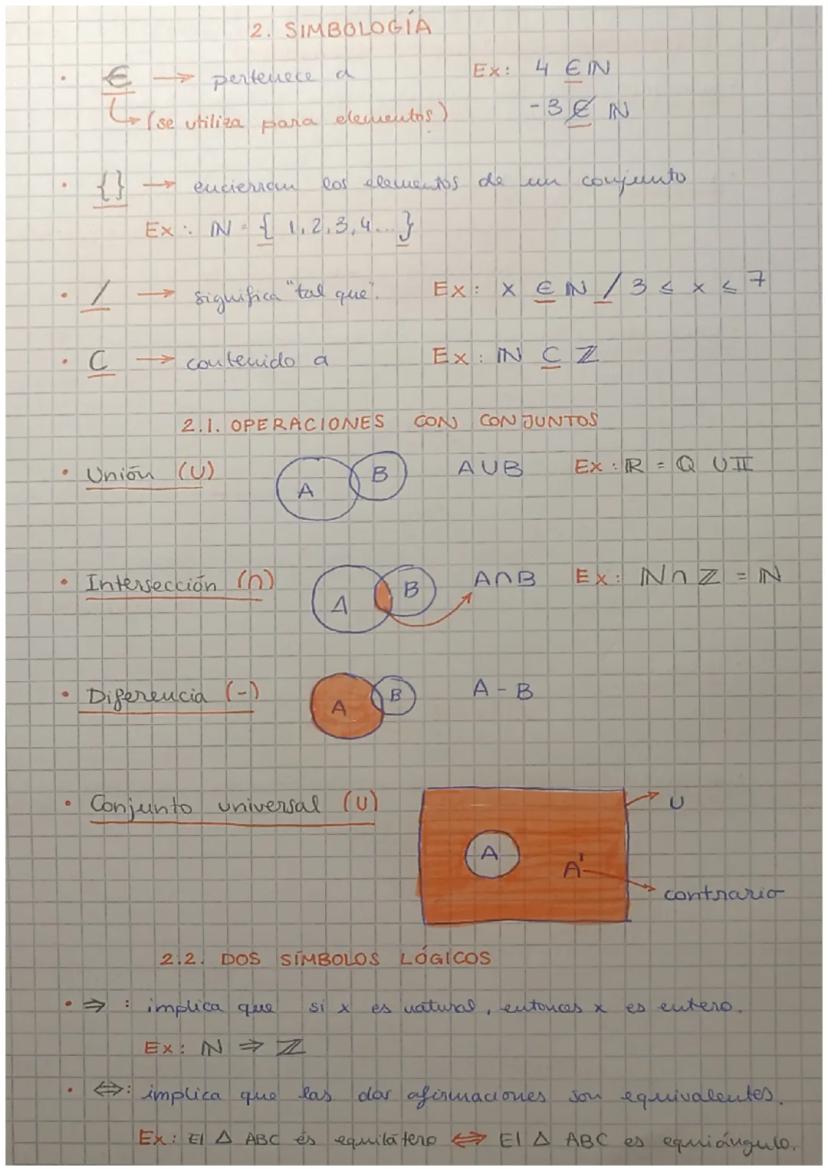 2. SIMBOLOGÍA
• ∈ → pertenece a Ex: 4 ∈ ℕ
↳ (se utiliza para elementos) -3 ∉ ℕ
• {} → encierran los elementos de un conjunto
Ex: ℕ = { 1, 2, 3, 4... }
• / → significa "tal que". Ex: x ∈ ℕ / 3 ≤ x ≤ 7
• ⊂ → contenido a Ex: ℕ ⊂ ℤ
2.1. OPERACIONES CON CONJUNTOS
• Unión (∪) A B A∪B Ex: ℝ = ℚ ∪ 𝕀
• Intersección (∩) A B A∩B Ex: ℕ ∩ ℤ = ℕ
• Diferencia (-) A B A - B
• Conjunto universal (U) U
A A'
contrario
2.2. DOS SÍMBOLOS LÓGICOS
• ⇒ : implica que si x es natural, entonces x es entero.
Ex: ℕ ⇒ ℤ
• ⇔: implica que las dos afirmaciones son equivalentes.
Ex: El △ ABC és equilátero ⇔ El △ ABC es equiángulo.